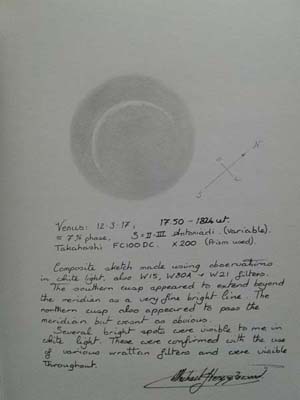 N
S
Venus: 12·3·17, 17.50 - 1824 ut.
= 7% phase, S = II-III Antoniadi. (Variable).
Takahashi FC100DC. X200 (Prism used).
Composite sketch made using observations
in white light, also W15, W80A + W21 filters.
The southern cusp appeared to extend beyond
the meridian as a very fine bright line. The
northern cusp also appeared to pass the
meridian but wasnt as obvious.
Several bright spots were visible to me in
white light. These were confirmed with the use
of various wratten filters and were visible
throughout.